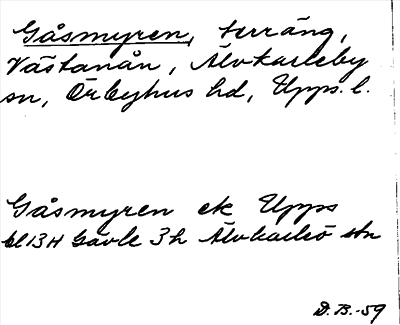 Gåsmyren, terräng,
Västanån, Älvkarleby
sn, Örbyhus hd, Upps. l.
Gåsmyren ek Upps
bl 13H Gävle 3h Älvkarleö stn
D. B. -59